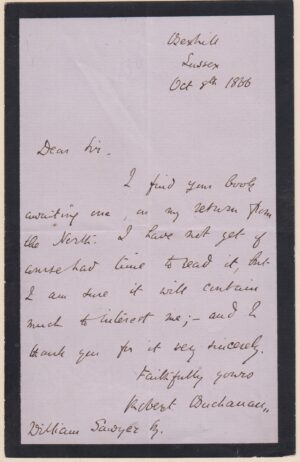 Bexhill
Sussex
Oct 8th 1866
Dear Sir.
I find your book
awaiting me, on my return from
the North. I have not yet of
course had time to read it, but
I am sure it will contain
much to interest me; – and I
thank you for it very sincerely.
Faithfully yours
Robert Buchanan
William Sawyer